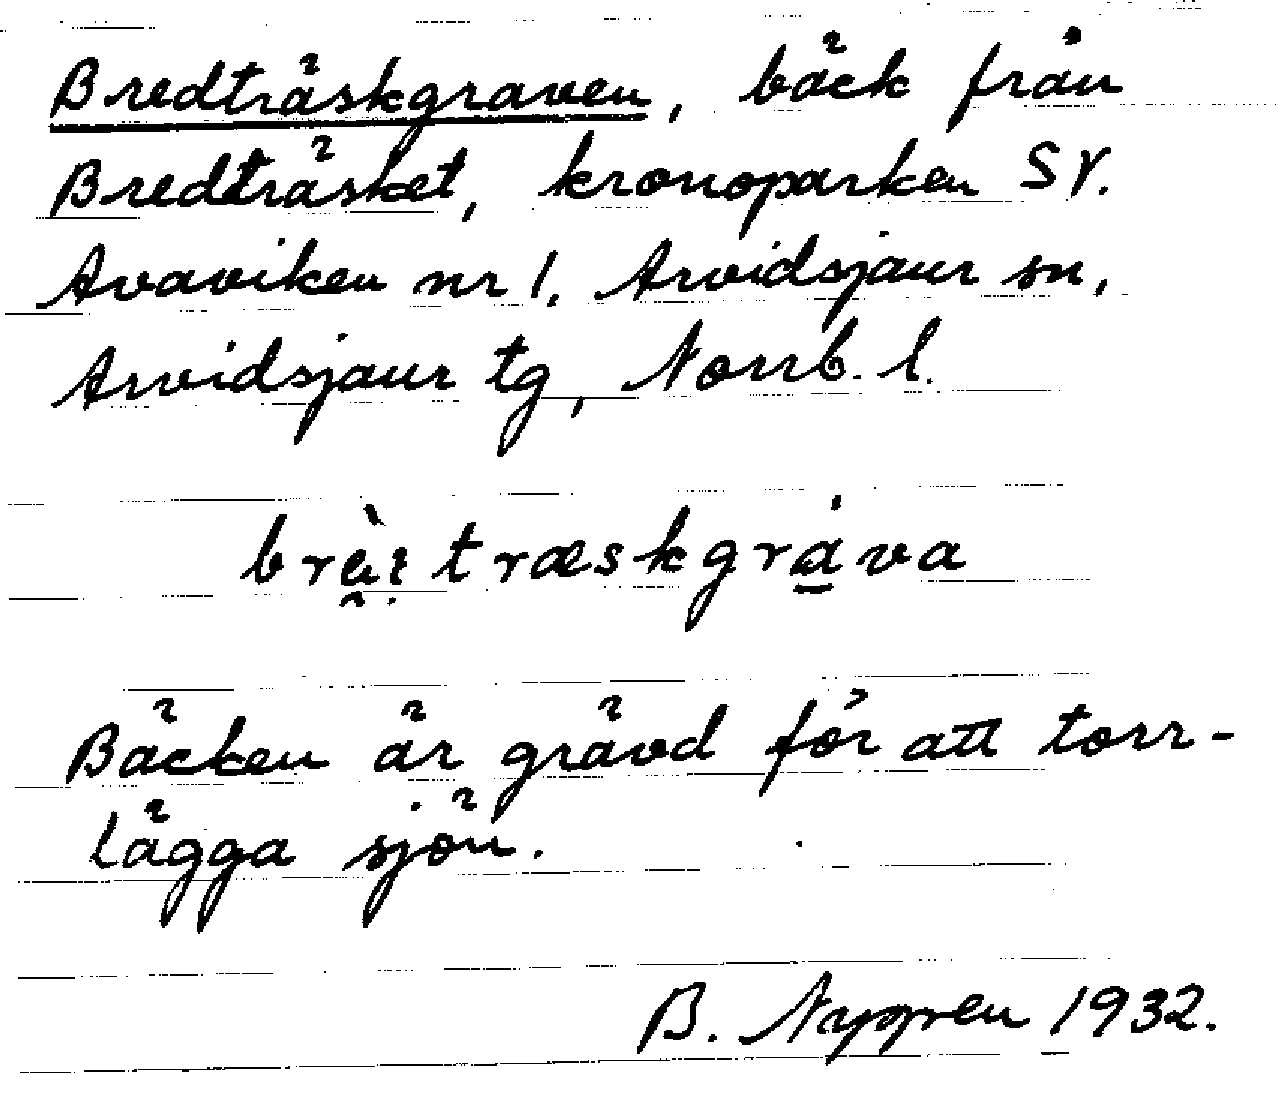 Bredträskgraven, bäck från
Bredträsket, kronoparken SV.
Avaviken nr 1, Arvidsjaur sn,
Arvidsjaur tg, Norrb. l.
träskgráva
Bäcken är grävd för att torr-
lägga sjön.
B. Nyppen 1932.